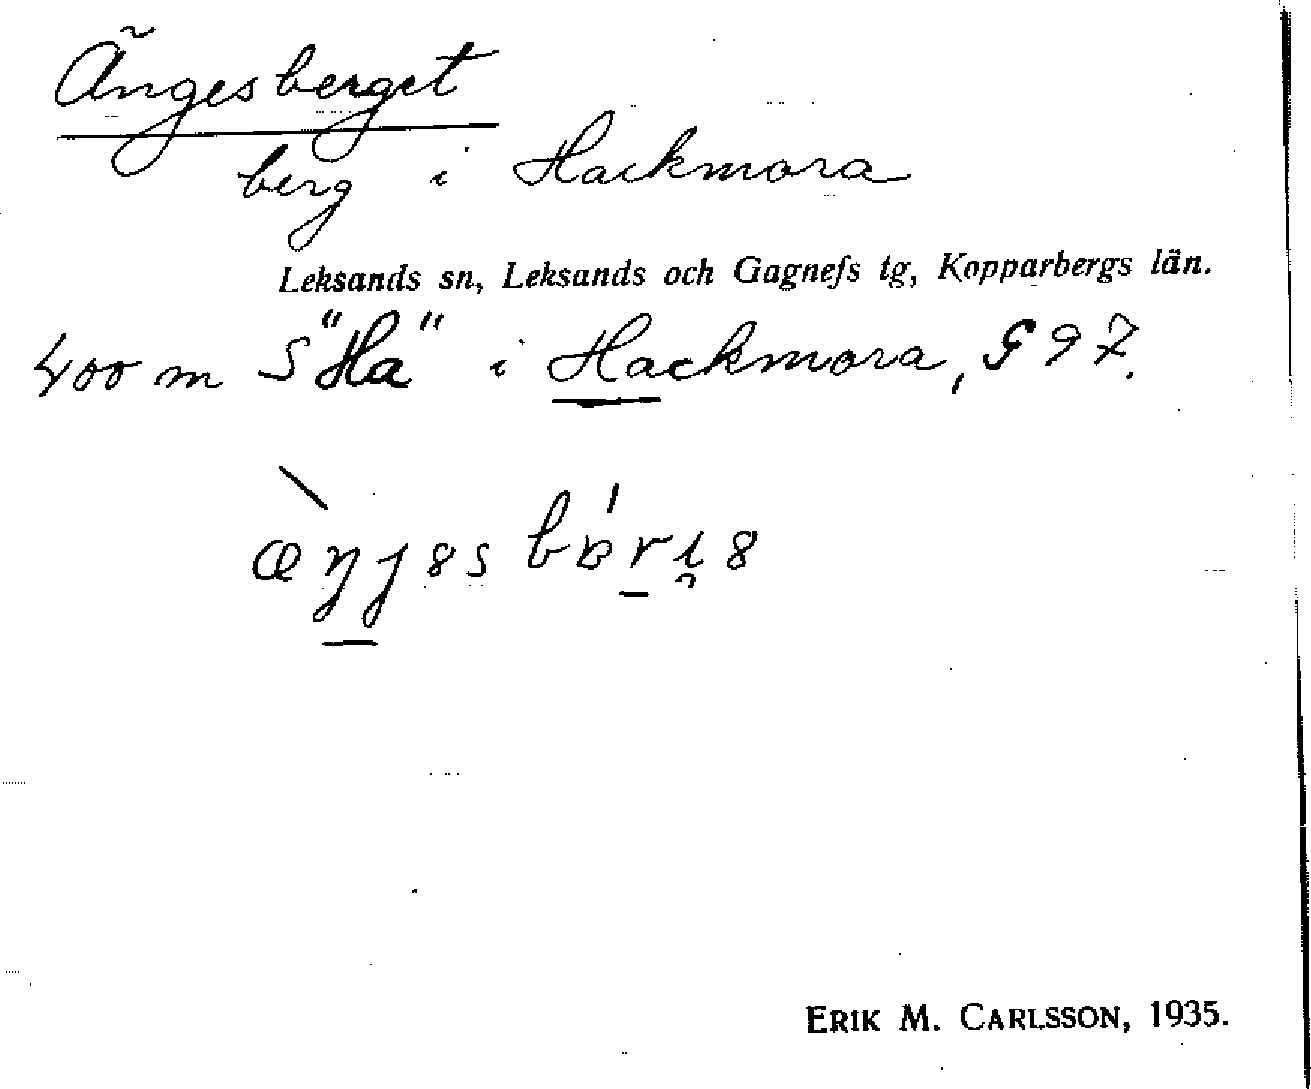 Ängesberget
berg i Hackmora
Leksands sn, Leksands och Gagnefs tg, Kopparbergs län.
400 m S "Ha" i Hackmora, G 9 7.
ERIK M. CARLSSON, 1935.